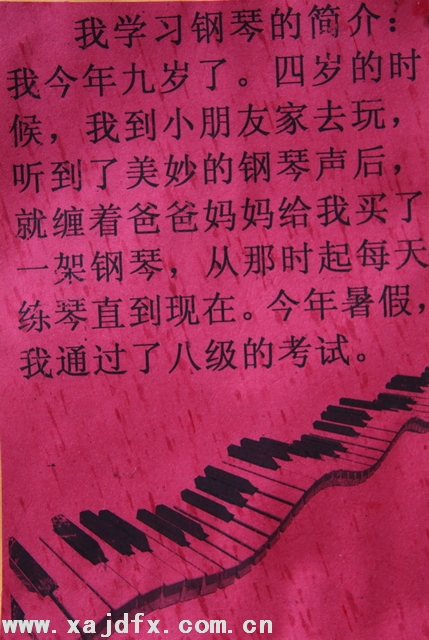 我学习钢琴的简介：
我今年九岁了。四岁的时
候，我到小朋友家去玩，
听到了美妙的钢琴声后，
就缠着爸爸妈妈给我买了
一架钢琴，从那时起每天
练琴直到现在。今年暑假，
我通过了八级的考试。
www.xajdfx.com.cn